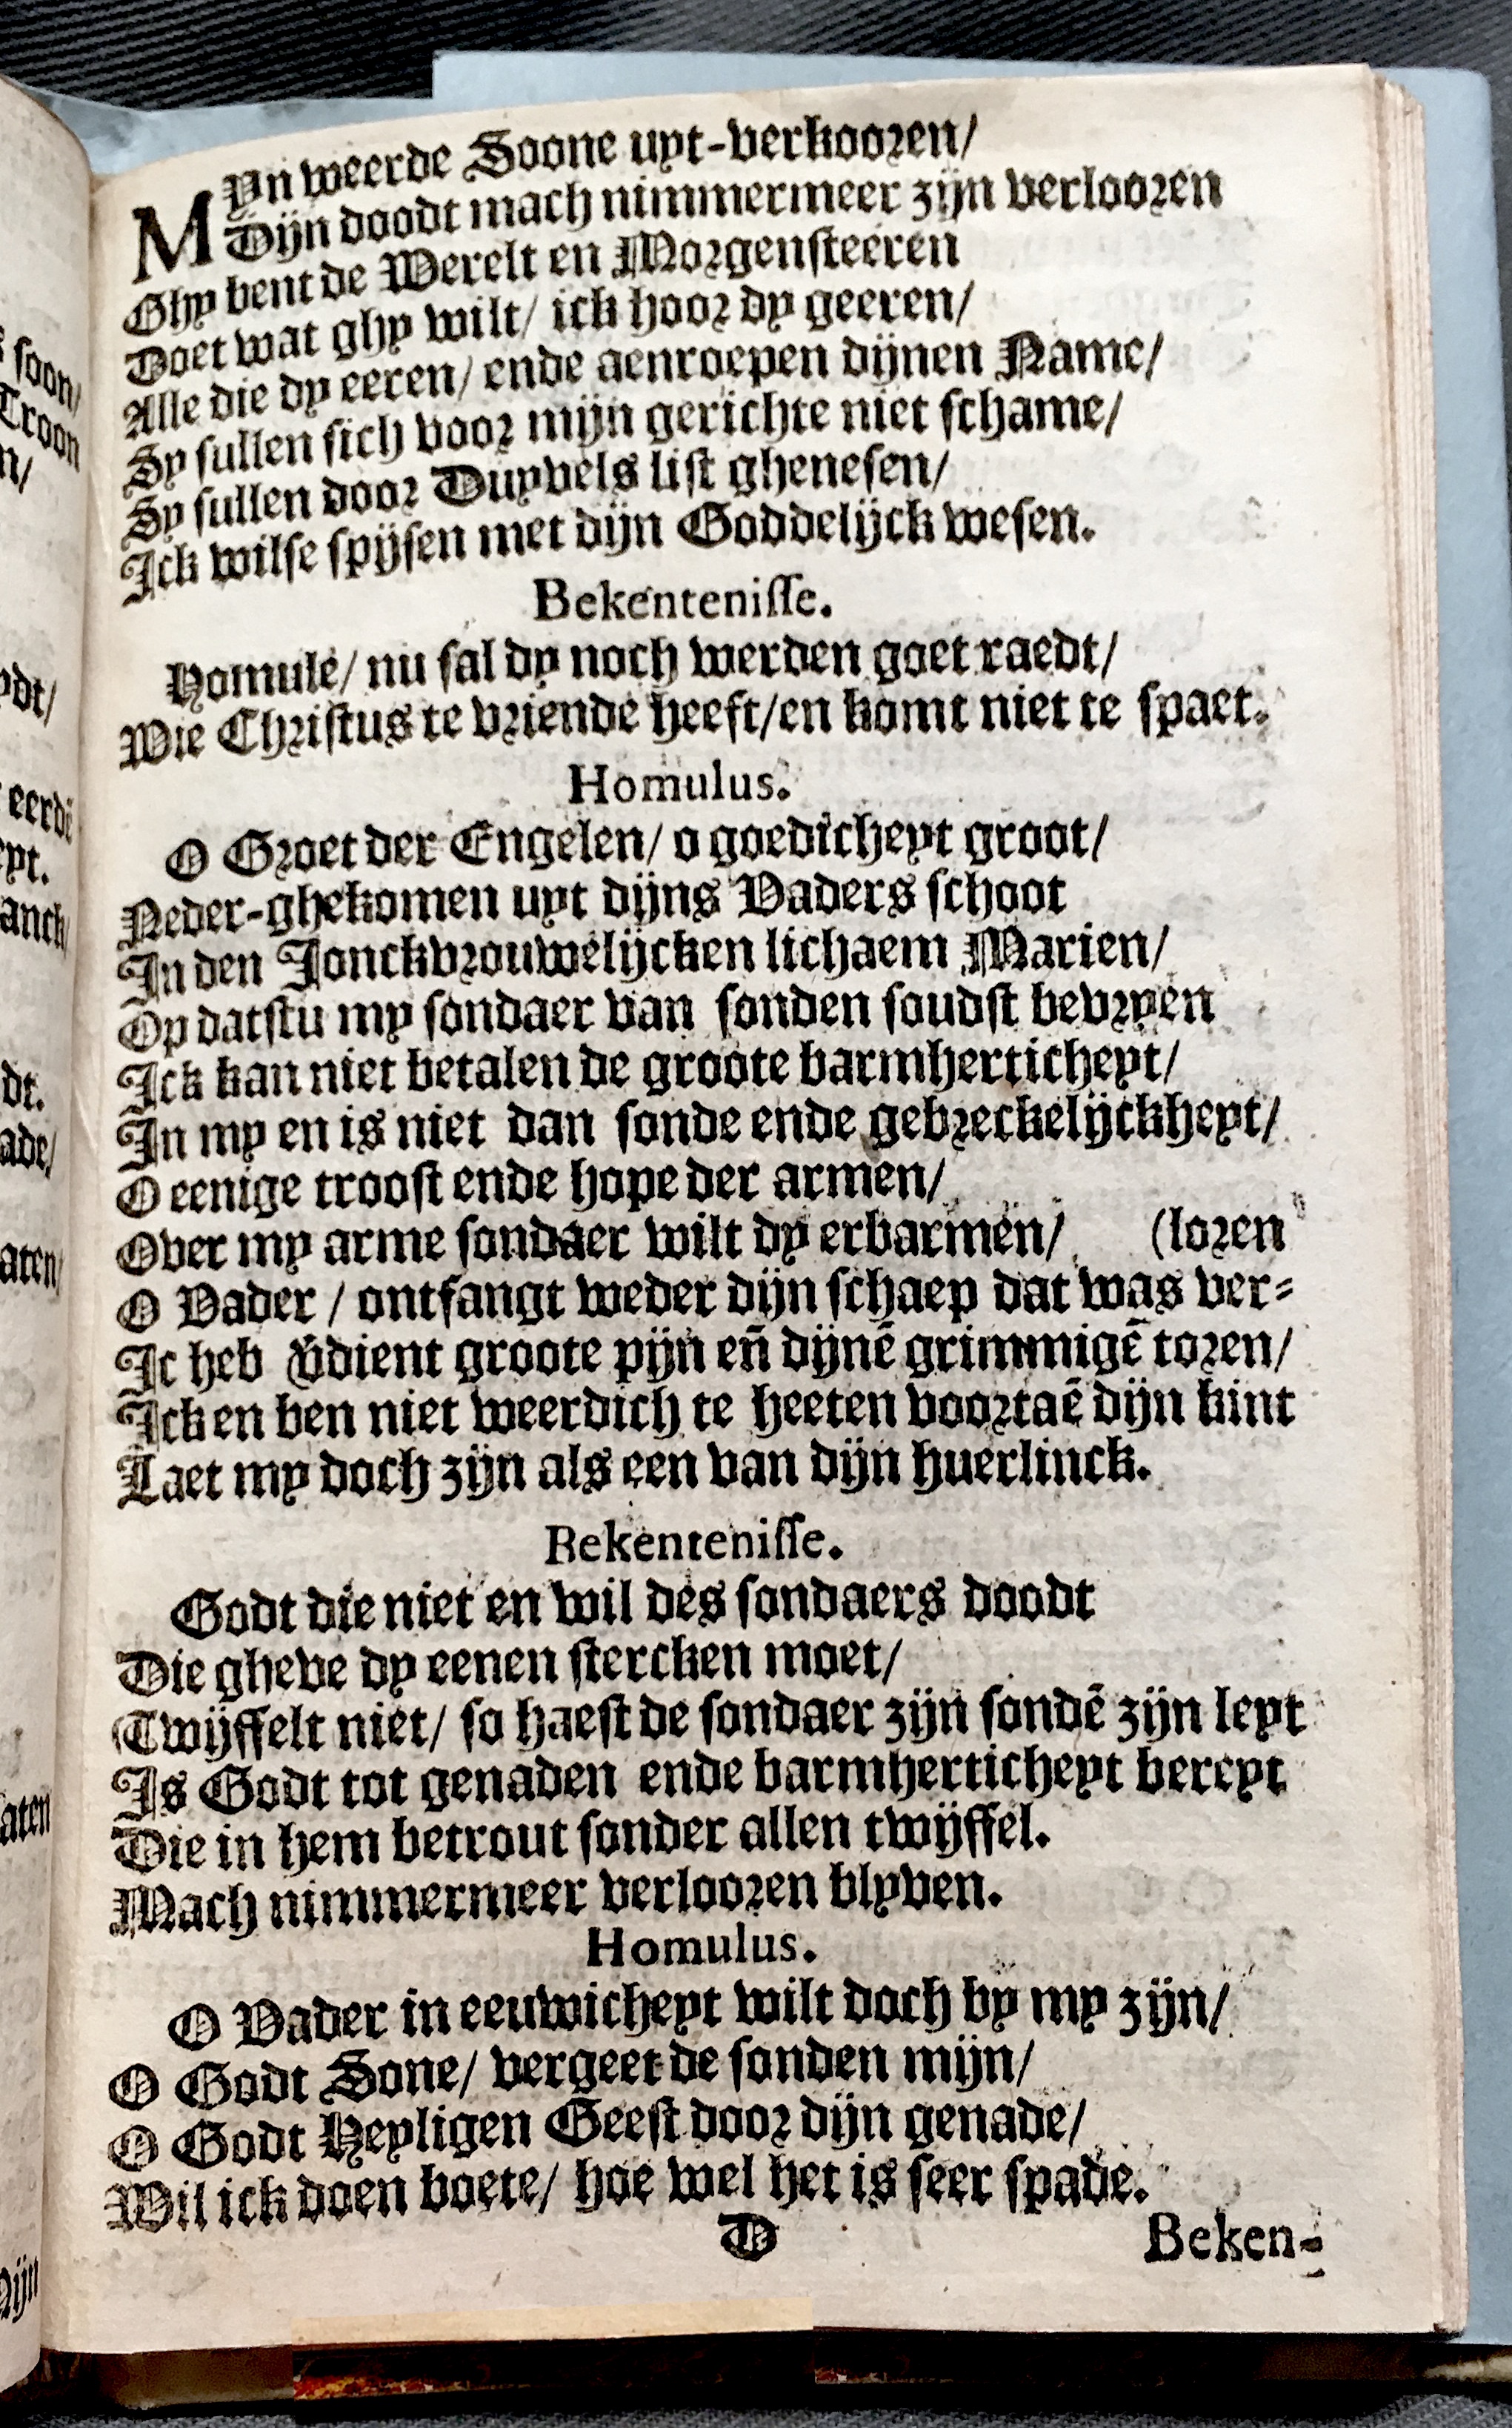 MYn weerde Soone uyt-verkooren/
Dijn doodt mach nimmermeer zijn verlooren
Ghy bent de Werelt en Morgensteeren
Doet wat ghy wilt/ ick hoor dy geeren/
Alle die dy eeren/ ende aenroepen dijnen Name/
Sy sullen sich voor mijn gerichte niet schame/
Sy sullen door Duyvels list ghenesen/
Ick wilse spijsen met dijn Goddelijck wesen.
Bekentenisse.
Homule/ nu sal dy noch werden goet raedt/
Wie Christus te vriende heeft/en komt niet te spaet.
Homulus.
O Groet der Engelen/ o goedicheyt groot/
Neder-ghekomen uyt dijns Vaders schoot
In den Jonckvrouwelijcken lichaem Marien/
Op datstu my sondaer van sonden soudst bevryen
Ick kan niet betalen de groote barmherticheyt/
In my en is niet dan sonde ende gebreckelijckheyt/
O eenige troost ende hope der armen/
Over my arme sondaer wilt dy erbarmen/ (loren
O Vader / ontfangt weder dijn schaep dat was ver-
Ic heb v̄dient groote pijn eñ dijnē grimmigē toren/
Ick en ben niet weerdich te heeten voortaē dijn kint
Laet my doch zijn als een van dijn huerlinck.
Bekentenisse.
Godt die niet en wil des sondaers doodt
Die gheve dy eenen stercken moet/
Twijffelt niet/ so haest de sondaer zijn sondē zijn leyt
Is Godt tot genaden ende barmherticheyt bereyt
Die in hem betrout sonder allen twijffel.
Mach nimmermeer verlooren blyven.
Homulus.
O Vader in eeuwicheyt wilt doch by my zijn/
O Godt Sone/ vergeet de sonden mijn/
O Godt Heyligen Geest door dijn genade/
Wil ick doen boete/ hoe wel het is seer spade.
D Beken-